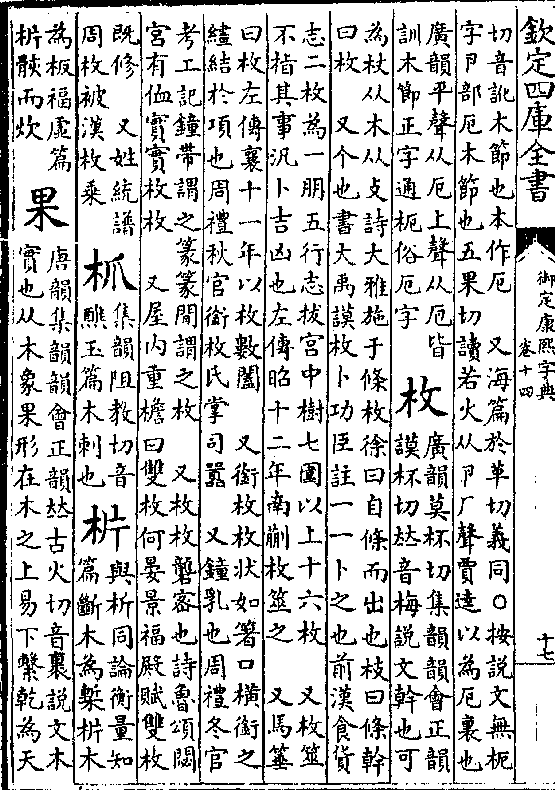 欽定四庫全書
御定康熙字典
卷十四
十七
切音訛木節也本作厄　又海篇於革切義同○按説文無枙
字卩部厄木節也五果切讀若火从卩厂聲賈逵以為厄裹也
廣韻平聲从厄上聲从厄皆
訓木節正字通枙俗厄字
枚
廣韻莫杯切集韻韻會正韻
謨杯切𠀤音梅説文榦也可
為杖从木从攴詩大雅施于條枚徐曰自條而出也枝曰條榦
曰枚　又个也書大禹謨枚卜功臣註一一卜之也前漢食貨
志二枚為一朋五行志拔宫中樹七圍以上十六枚　又枚筮
不指其事汎卜吉凶也左傳昭十二年南蒯枚筮之　又馬箠
曰枚左傳襄十一年以枚數闔　又銜枚枚狀如箸口横銜之
繣結於項也周禮秋官銜枚氏掌司囂　又鐘乳也周禮冬官
考工記鐘帶謂之篆篆間謂之枚　又枚枚礱密也詩魯頌閟
宫有侐實實枚枚　又屋内重檐曰雙枚何晏景福殿賦雙枚
既修　又姓統譜
周枚被漢枚乘
㭉集韻阻教切音
玉篇木刺也
㭊
與析同論衡量知
篇斷木為槧㭊木
為板福虛篇
㭊骸而炊
果
唐韻集韻韻會正韻𠀤古火切音裹説文木
實也从木象果形在木之上易下繫乾為天